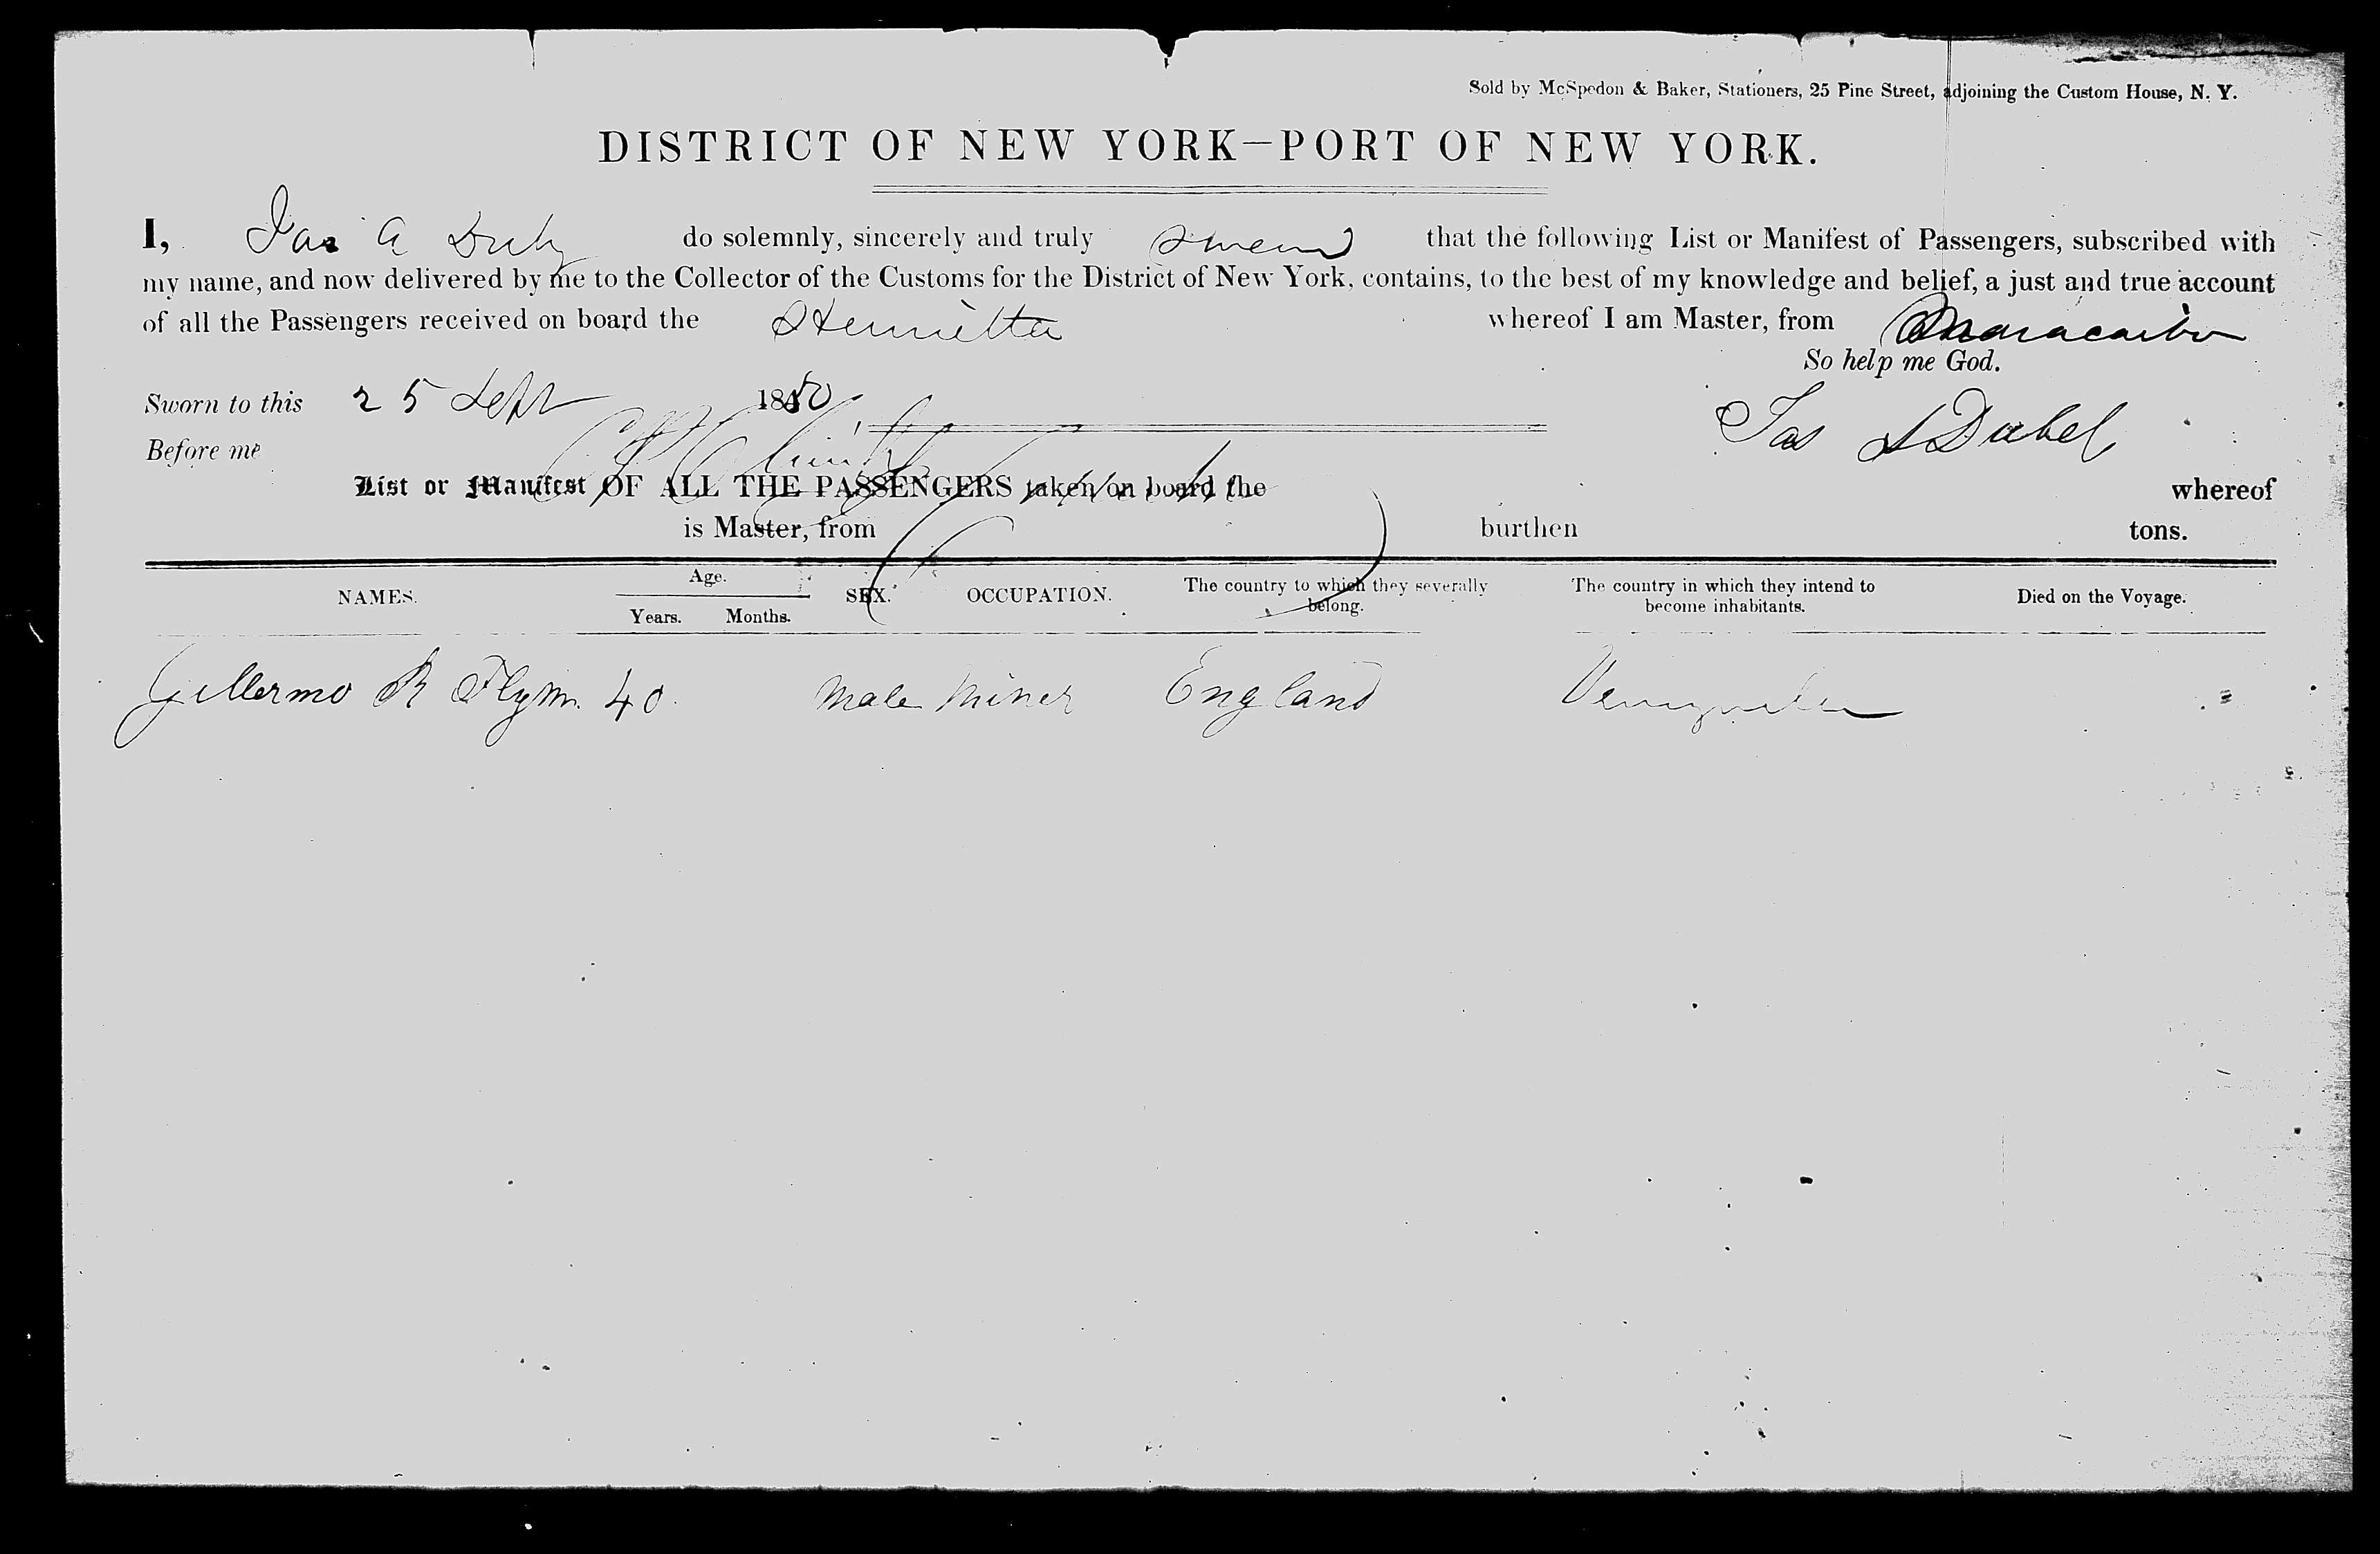 Sold by McSpedon & Baker, Stationers, 25 Pine Street, adjoining the Custom House, N. Y.
DISTRICT OF NEW YORK—PORT OF NEW YORK.
I, Jas A do solemnly, sincerely and truly swear that the following List or Manifest of Passengers, subscribed with
my name, and now delivered by me to the Collector of the Customs for the District of New York, contains, to the best of my knowledge and belief, a just and true account
of all the Passengers received on board the Henrietta whereof I am Master, from Maracaibo
So help me God.
Sworn to this 25 Sept 1850
Jas A
Before me
List or Manifest OF ALL THE PASSENGERS taken on board the whereof
is Master, from burthen tons.
NAMES. Age. Years. Months. SEX. OCCUPATION. The country to which they severally belong. The country in which they intend to become inhabitants. Died on the Voyage.
Gillermo R Flynn. 40. Male Miner England Venezuela